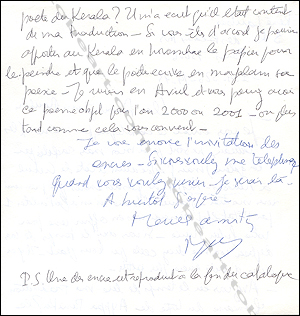 poète du Kerala? Il m'a écrit qu'il était content
de ma traduction - Si vous êtes d'accord je pourrai
apporter au Kerala en novembre le papier pour
le peindre et que le poète écrive en malayalam son
poème - Je viens en Avril d'où pouvoir avoir
ce poème objet pour l'an 2000 ou 2001 - ou plus
tard comme cela vous convient -
Je vous envoie l'invitation des
encres - Si vous voulez me téléphoner
quand vous voulez venir - je serai là -
A bientôt j'espère -
P.S. Une des encres est reproduite à la fin du catalogue